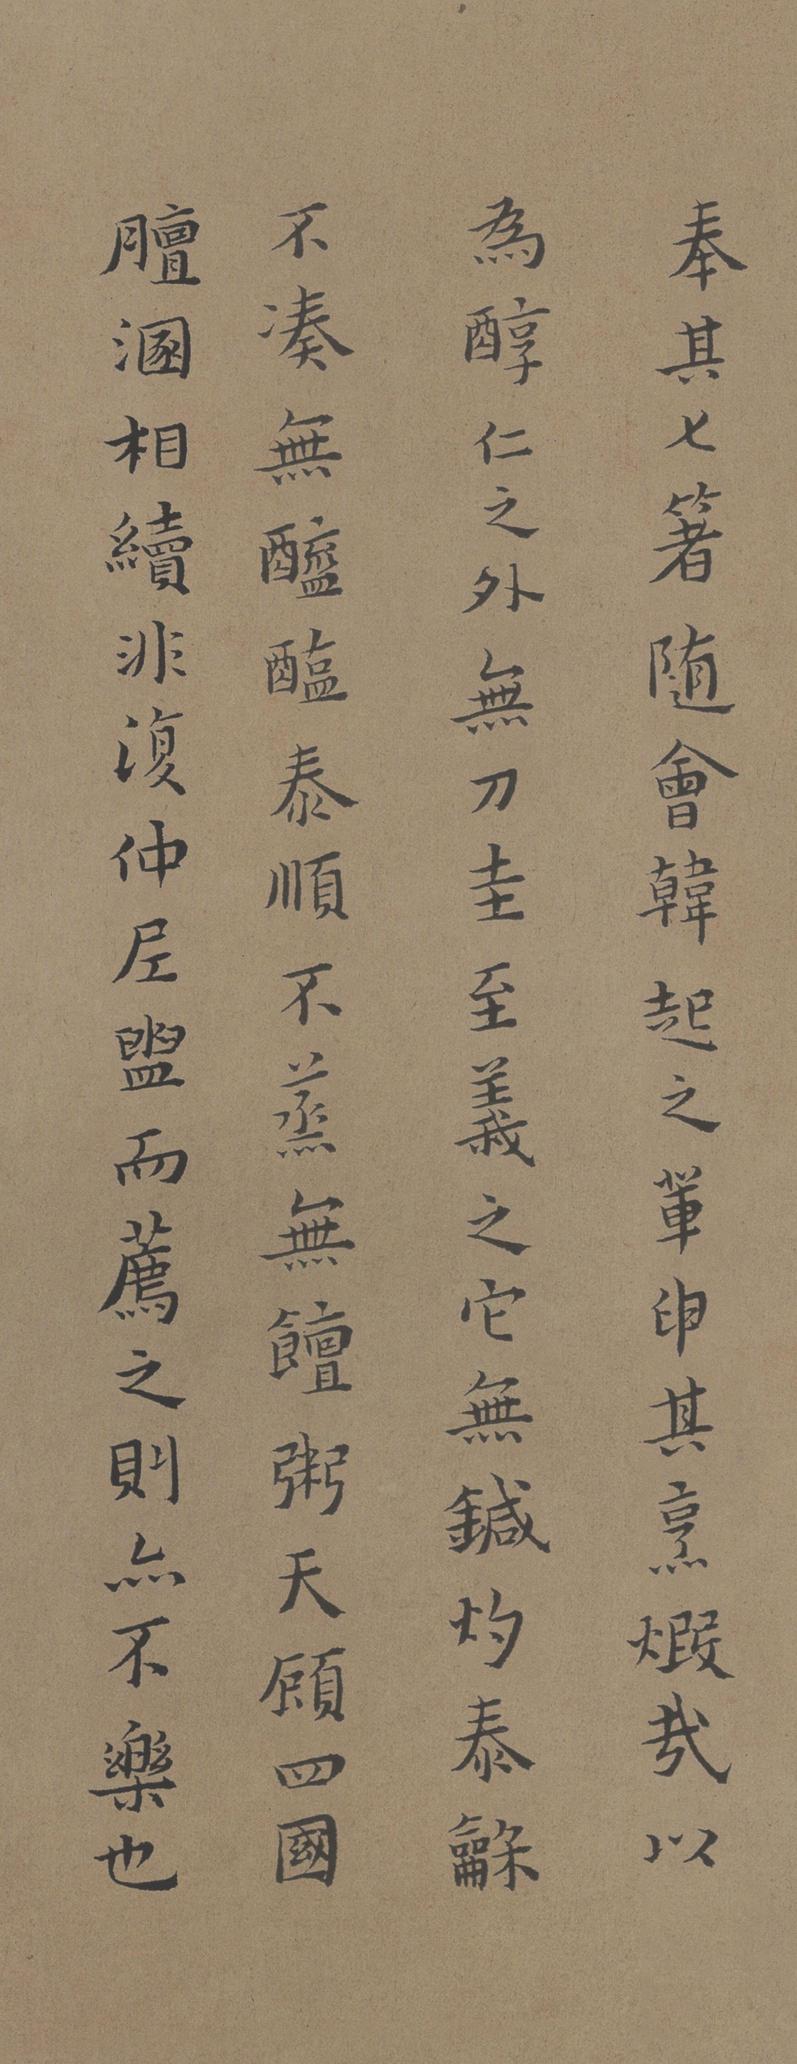 奉其匕箸随會韓起之軰申其烹煆哉以
為醇仁之外無刀圭至義之它無鍼灼泰龢
不凑無醯醢泰順不蒸無饘粥天顧四國
膻溷相續非復仲尼盥而薦之則亦不樂也